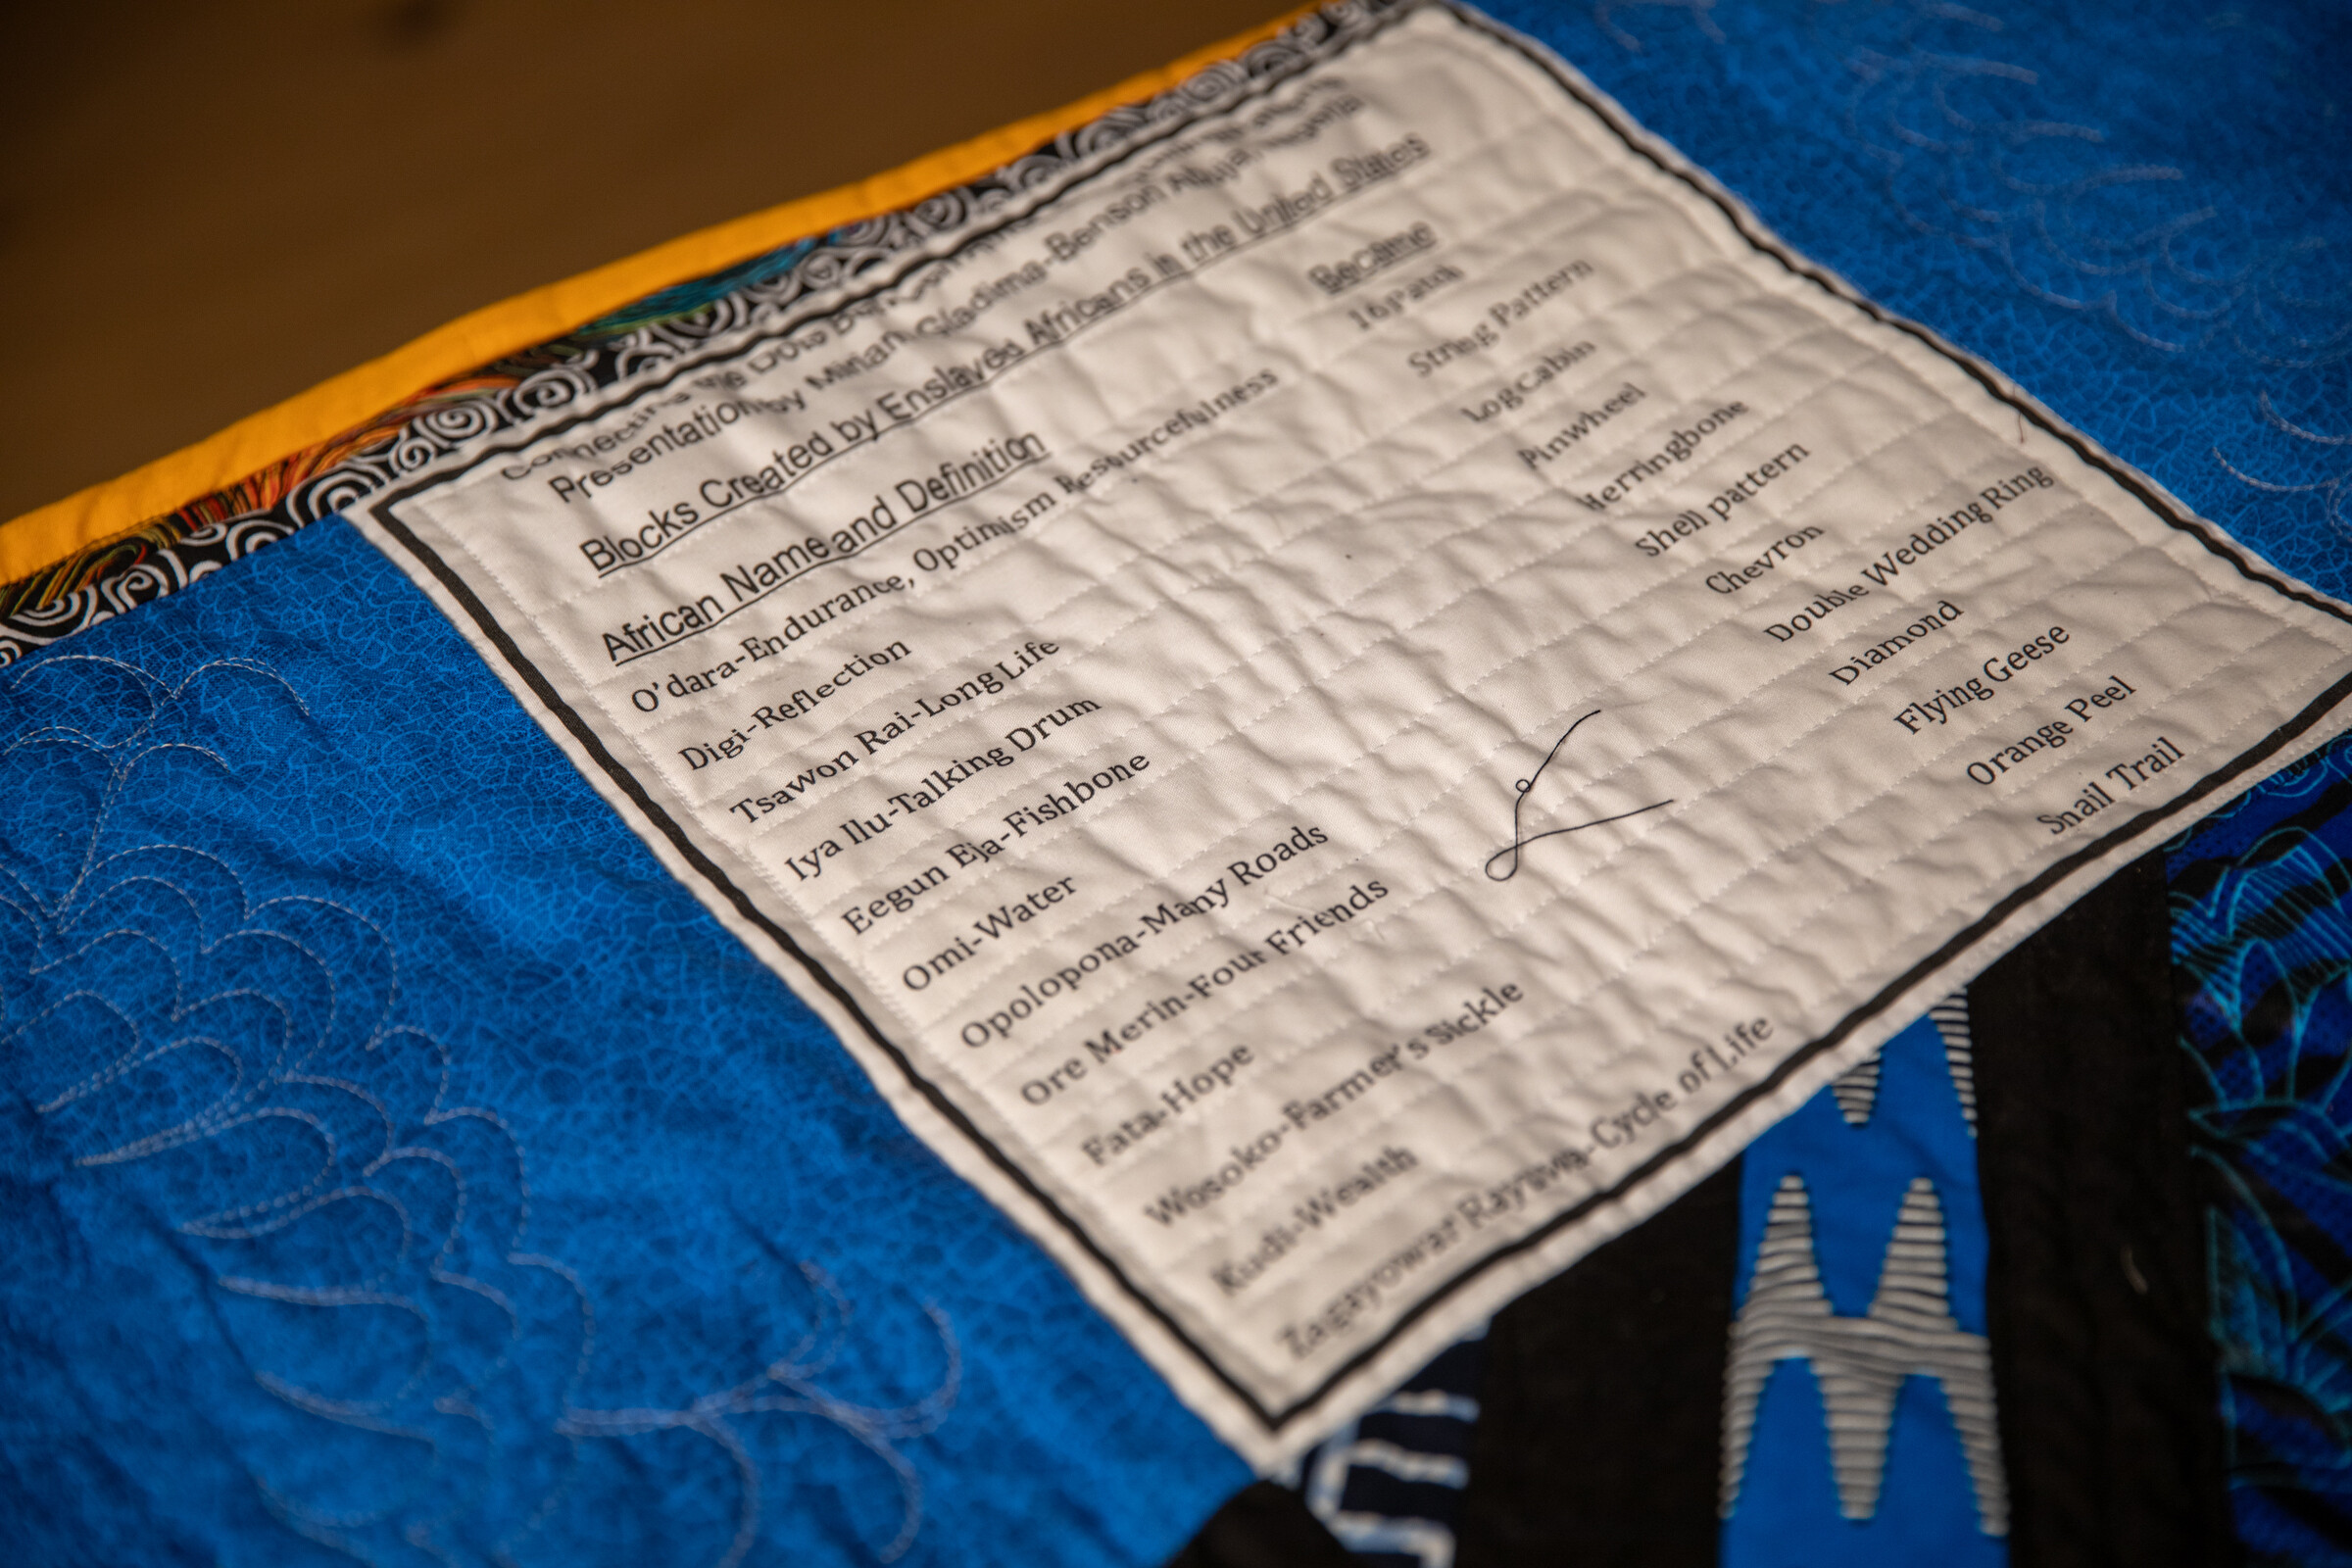 Connecting the Dots
Presentation by Miriam Gladima-Benson
Blocks Created by Enslaved Africans in the United States
African Name and Definition Became
O'dara-Endurance, Optimism Resourcefulness 16 Patch
Digi-Reflection String Pattern
Tsawon Rai-Long Life Logcabin
Iya Ilu-Talking Drum Pinwheel
Eegun Eja-Fishbone Herringbone
Omi-Water Shell pattern
Opolopona-Many Roads Chevron
Ore Merin-Four Friends Double Wedding Ring
Fata-Hope Diamond
Wosoko-Farmer's Sickle Flying Geese
Kudi-Wealth Orange Peel
Zagayowar -Cycle of Life Snail Trail